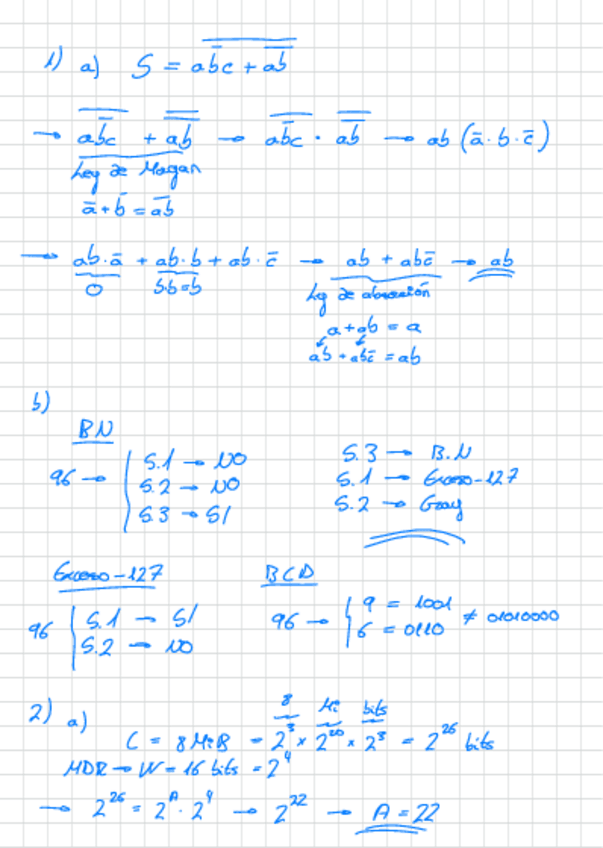 1) a) S = \overline{a\overline{b}c + \overline{ab}}
→ \overline{a\overline{b}c} + \overline{\overline{ab}} → \overline{a\overline{b}c} · \overline{\overline{ab}} → ab (ā · b · c̄)
Ley de Morgan
ā + b̄ = \overline{ab}
→ ab·ā + ab·b + ab·c̄ → ab + abc̄ → ab
0 b·b=b Ley de absorción
a+ab = a
ab + abc̄ = ab
b)
BN
96 → S.1 → NO
S.2 → NO
S.3 → SI
S.3 → B.N
S.1 → Exceso-127
S.2 → Gray
Exceso-127
96 S.1 → SI
S.2 → NO
BCD
96 → 9 = 1001
6 = 0110 ≠ 01010000
2) a)
8 Mi bits
C = 8 MiB = 2³ × 2²⁰ × 2³ = 2²⁶ bits
MDR → W = 16 bits = 2⁴
→ 2²⁶ = 2ᴬ · 2⁴ → 2²² → A = 22